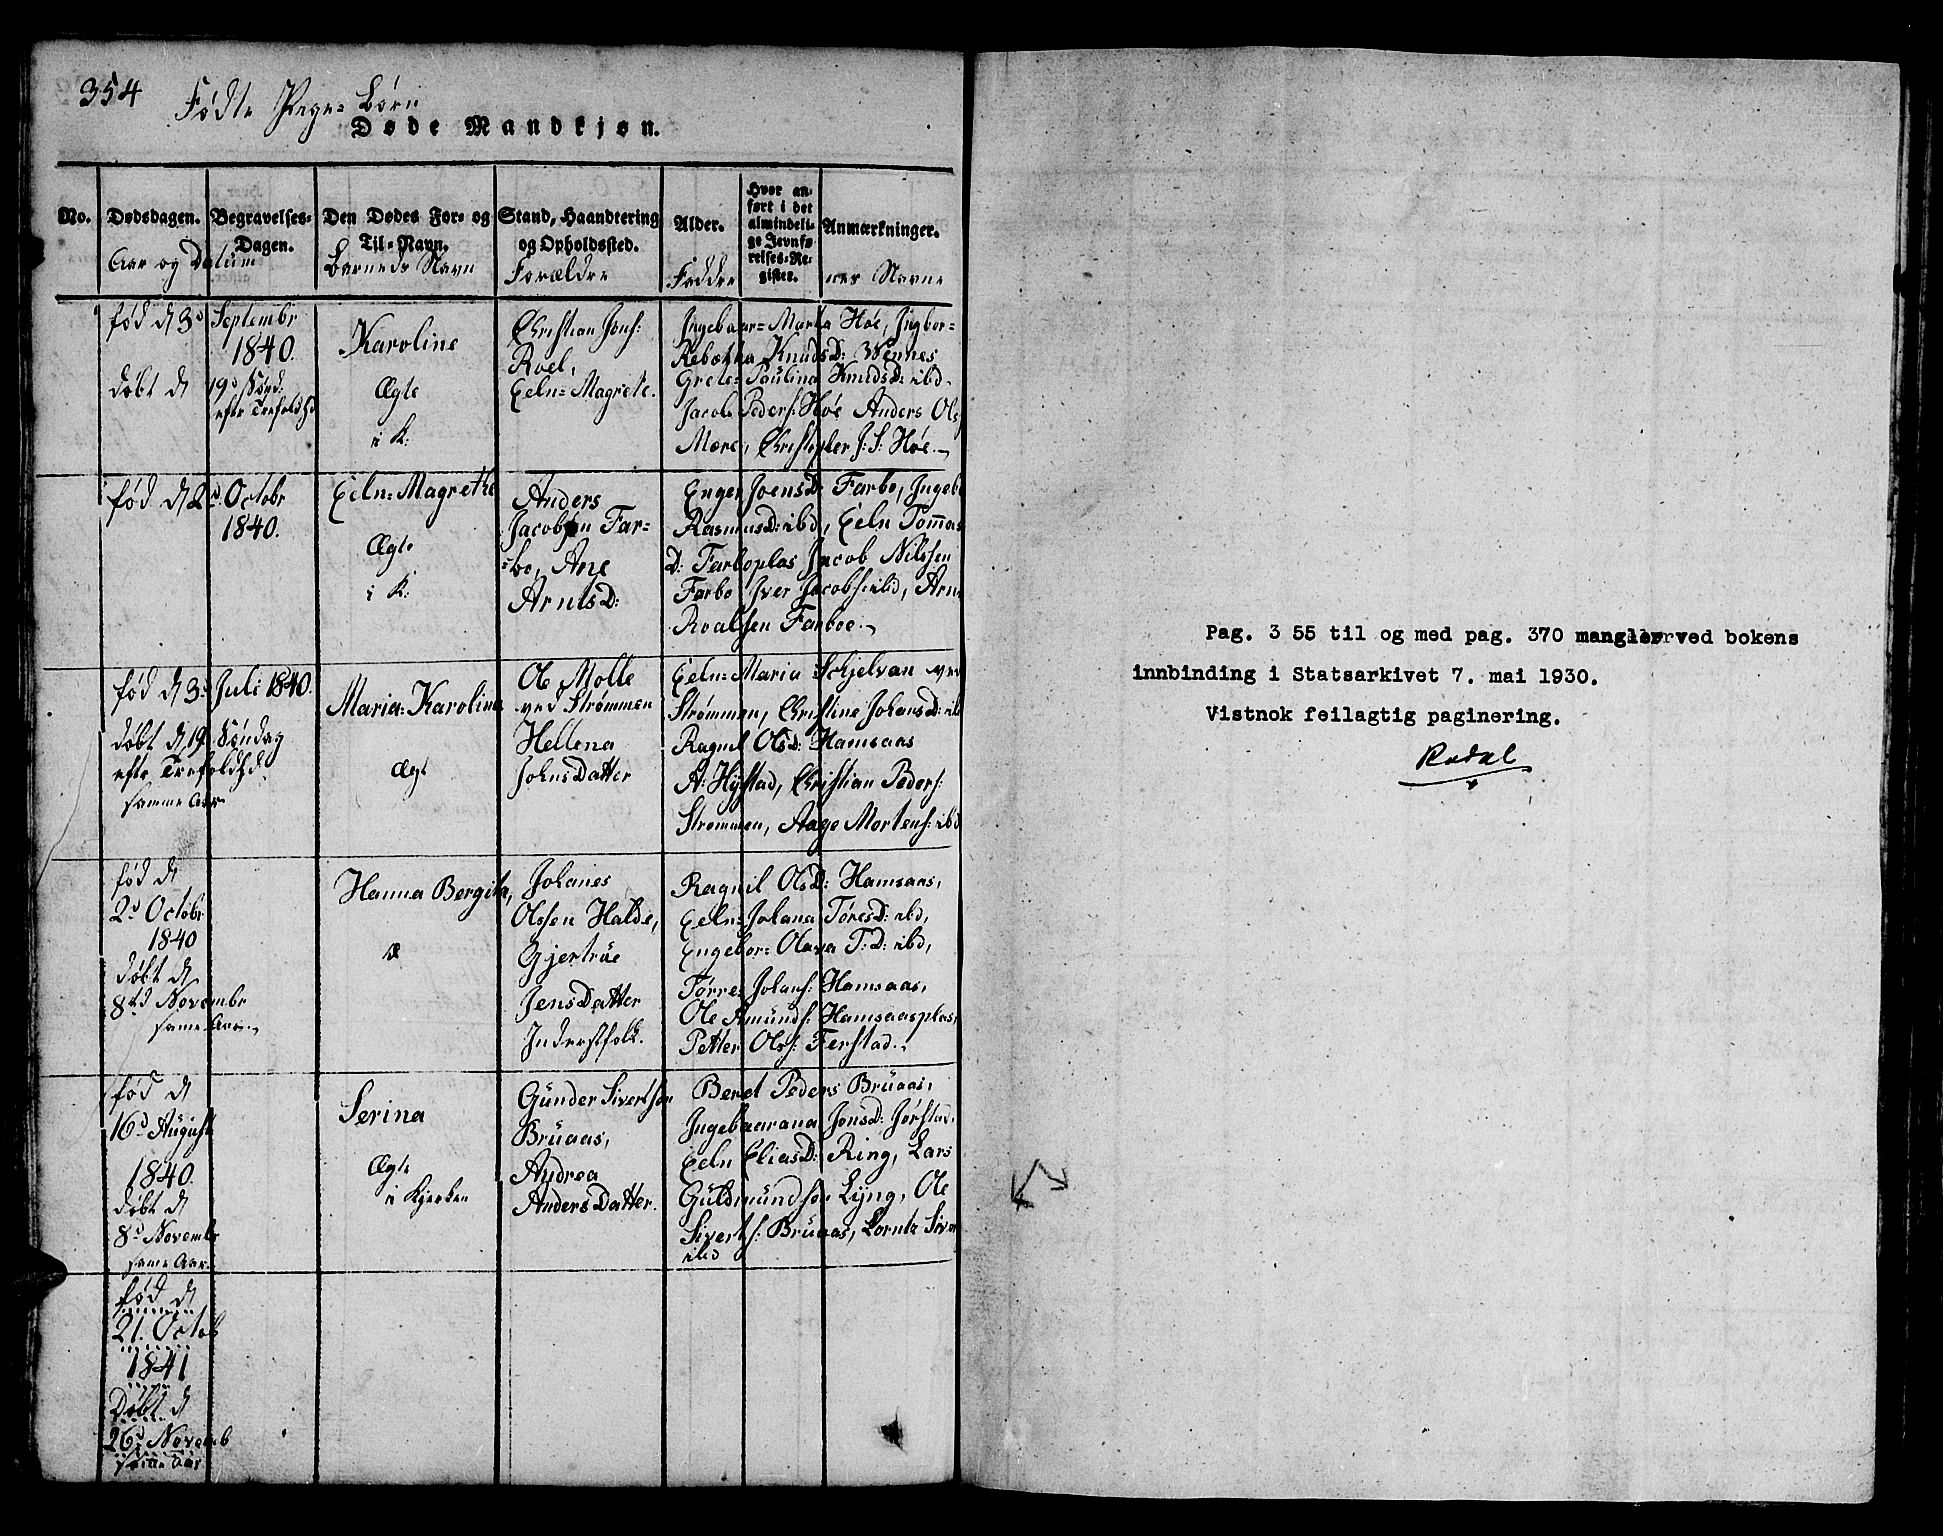 354
Fødte Pige= Børn
Døde Mandkjøn.
No.
Dødsdagen.
Aar og Datum
Begravelses-
Dagen.
Den Dødes For= og
Til=Navn.
Barnets Navn
Stand, Haandtering
og Opholdssted.
Forældre
Alder.
Hvor an-
ført i det
almindeli-
ge Jevnfø-
relses-Re-
gister.
Anmærkninger.
Fadder nes Navne
fød d 3d Septembr
1840.
døbt d 19d Sønd.
efte Trefoldhd
Karoline
Ægte
i K:
Christian Jons:
Roel,
Eeln= Magrete.
Ingebaar= Marta Høe, Ingbor=
Rebækka KnudsD: Wennes
Grete= Paulina KnudsD: ibd.
Jacob Peders: Høe Anders Ols
Mære, Christopher J: S: Høe.
fød d 2d Octobr
1840.
Eeln= Magrethe
Ægte
i K:
Anders
Jacobsen Far=
=bo, Ane
ArntsD:
Enger JoensD: Farbo, Ingeb
RasmusD: ibd, Eeln Tommas
D: Farboplas Jacob Nilssen
Farbo Iver Jacobs: ibid, Arn
Roalssen Farboe.
fød d 3d Juli 1840.
døbt d 19 Søndag
efte Trefoldhd.
samme Aar
Maria= Karolina
Ægt
Ole Molle
ved Strømmen
Hellena
JohnsDatter
Eeln= Maria Schjelvan ved
Strømmen, Christine JohansD: ibd
Ragnil OlsD: Hamsaas
A: Hystad, Christian Peders:
Strømmen, Aage Mortens: ibd
fød d
2d Octobr
1840
døbt d
8d Novembr
same Aar
Hanna Bergita,
Æ
Johanes
Olssen Halde,
Gjertrue
JensDatter
Inderstfolk.
Ragnil OlsD: Hamsaas,
Eeln= Johana TøresD: ibd,
Engebor= Olava T: D: ibd,
Tørres Johans: Hamsaas,
Ole Amunds: Hamsaasplas,
Petter Ols: Ferstad.
fød d
16d August
1840.
døbt d
8d Novembr
same Aar.
Serina
Ægte
i Kjerken
Gunder Sivertsøn
Bruaas,
Andrea
AndersDatter.
Beret Peders Bruaas,
Ingebaarana JonsD: Jørstad,
Eeln EliasD: Ring, Lars
Guldmundsøn Lyng, Ole
Siverts: Bruaas, Lorntz Siver
ibd
fød d
21. Octob
1841
Døbt d
26d Novemb
same Aar
Pag. 3 55 til og med pag. 370 mangler ved bokens
innbinding i Statsarkivet 7. mai 1930.
Vistnok feilagtig paginering.
Rødal